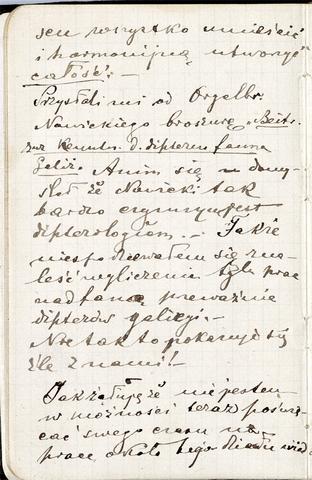 sen wszystko umieścić
i harmonijną utworzyć
całość. —
Przysłali mi od Orgelbr.
Nowickiego broszurę „Beitr.
zur Kenntn. d. dipteren fauna
Galiz. Anim się domy-
ślał że Nowicki tak
bardzo czynnym jest
dipterologiem. — Także
niespodziewałem się zna-
leść wyliczenia tylu prac
nad fauną, przeważnie
dipterów galicyj. —
Nie tak to pokazuje się
źle z nami! —
Jak żałuję że nie jestem
w możności teraz poświę-
cać swego czasu na
prace około tego działu